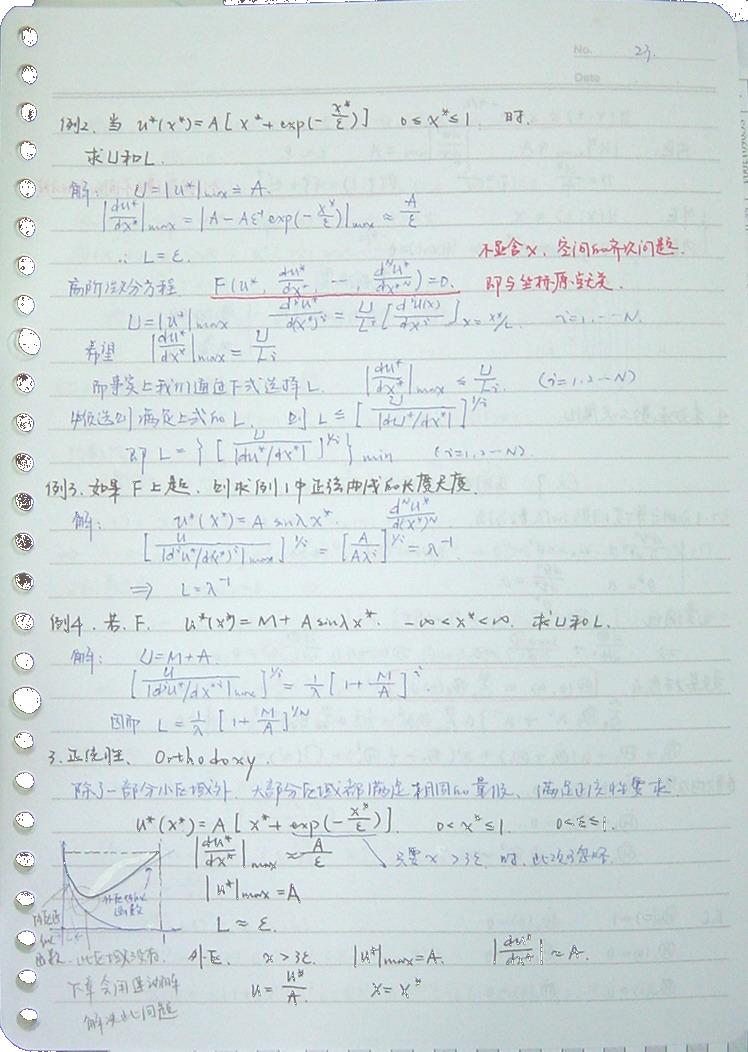 No. 23.
Date
例2. 当 u*(x*) = A[x* + exp(-x*/ε)] 0≤x*≤1. 时.
求U和L.
解: U=|u*|max = A.
|du*/dx*|max = |A - Aε⁻¹exp(-x*/ε)|max ≈ A/ε
∴ L = ε.
不显含x, 空间的齐次问题.
高阶微分方程 F(u*, du*/dx*, ..., d^N u*/dx*^N) = 0. 即与坐标原点无关.
U=|u*|max d^i u*/d(x*)^i = U/L^i [d^i u(x)/dx^i] x=x*/L. i=1,...N.
希望 |du*/dx*|max = U/L^i
而事实上我们通过下式选择L. |du*/dx*|max ≤ U/L^i. (i=1,2...N)
满足上式的L. 则 L ≤ [U/|du*/dx*|]^(1/i)
即 L = {[U/|du*/dx*|]^(1/i)}min (i=1,2...N).
例3. 如果F上起, 则求例1中正弦曲线的长度尺度.
解: u*(x*) = A sinλx*. d^N u*/d(x*)^N
[U/|d^i u*/d(x*)^i|max]^(1/i) = [A/Aλ^i]^(1/i) = λ⁻¹
⟹ L=λ⁻¹
例4. 若. F. u*(x*) = M + A sinλx*. -∞<x*<∞. 求U和L.
解: U=M+A.
[U/|d^i u*/dx*^i|max]^(1/i) = 1/λ [1+M/A]^i.
因而 L = 1/λ [1+M/A]^(1/N)
3. 正统性. Orthodoxy.
除了一部分小区域外, 大部分区域都满足相同的量级, 满足正统性要求.
u*(x*) = A[x* + exp(-x*/ε)]. 0<x*≤1. 0<ε≤1.
|du*/dx*|max ≈ A/ε 只要x>3ε 时, 此次忽略.
|u*|max = A
L ≈ ε.
外区域的函数
内区域
函数. 此区域没有. 外区. x>3ε. |u*|max=A. |du*/dx*| ≈ A.
下章会用运动解 u = u*/A. x = x*
解决此问题